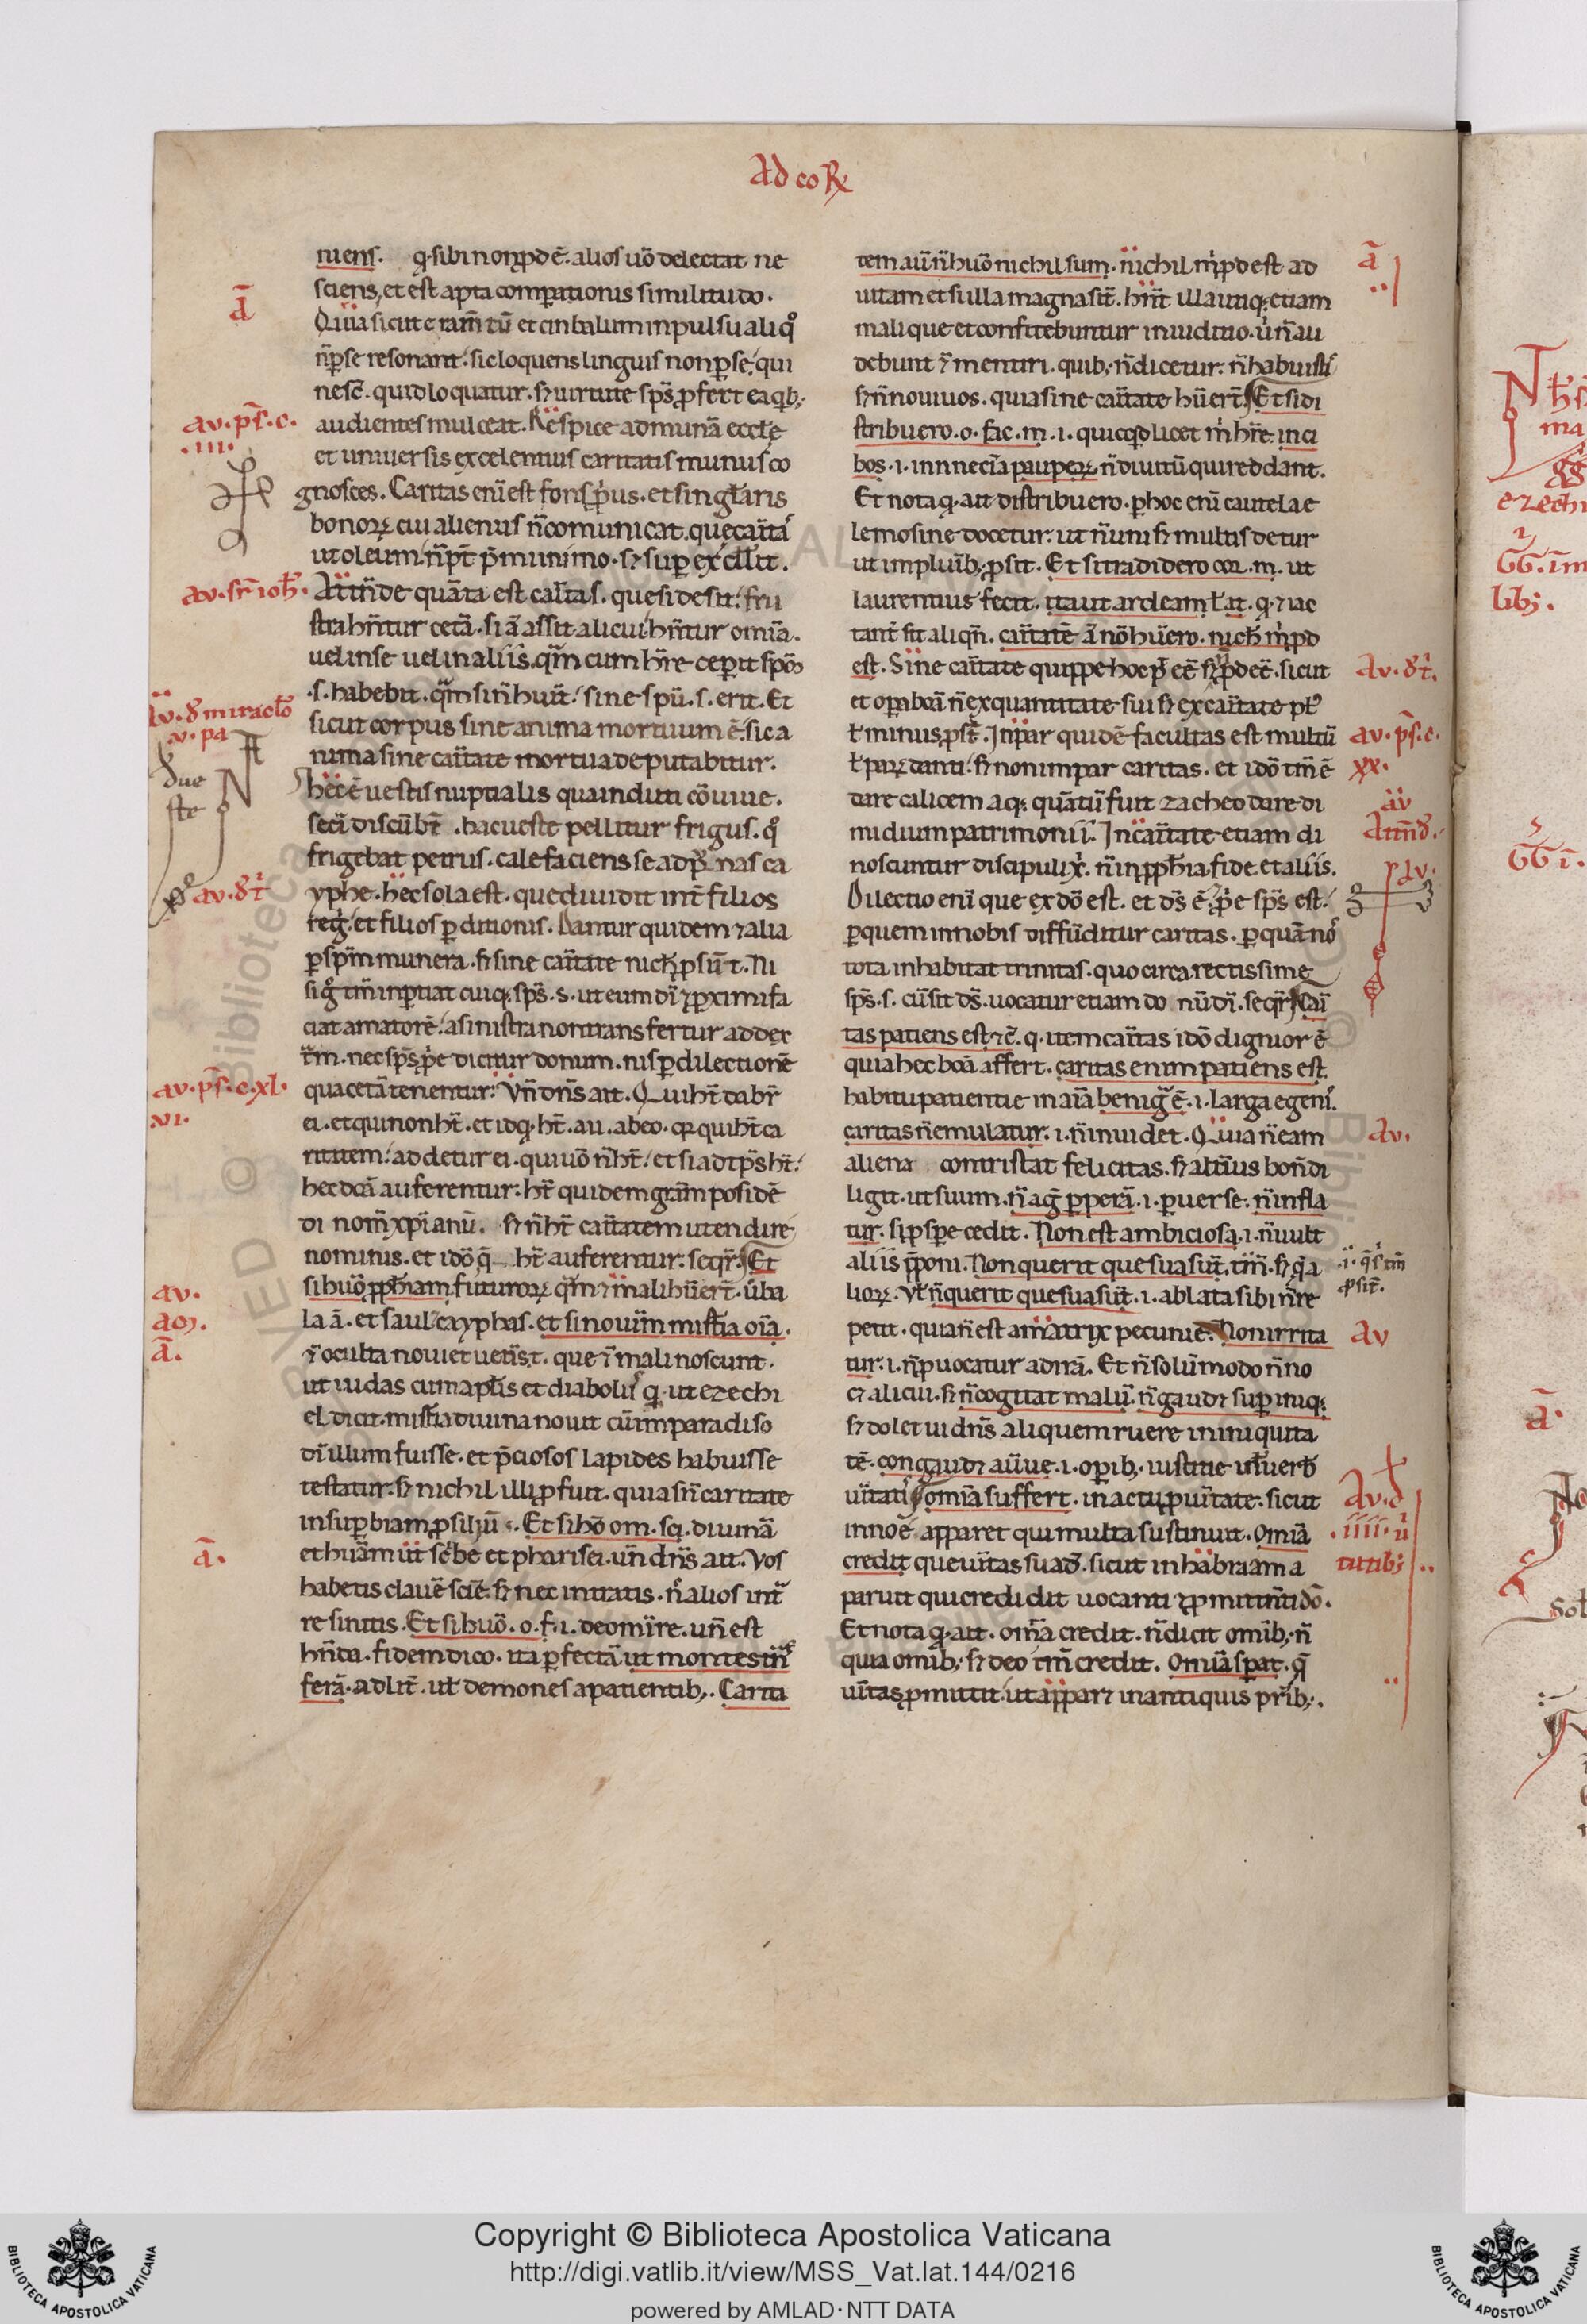 Ad coR
niens. q. sibi non p̄d ē. alios uō delectat ne
sciens, et est apta comparationis similitudo.
Quia sicut eram̄tū et cinbalum inpulsu aliqͦ
n̄ per se resonant: sic loquens linguis non per se, qui
nesc̄. quid loquatur. sꝫ uirtute sp̄s p̄fert ea qb;
audientes mulceat. Respice ad munā eccłę
et uniuersis excelentius caritatis munus co
gnosces. Caritas enī est fons p̄prius. et singłaris
bonoꝝ cui alienus n̄ comunicat. que cām̄
ut oleum. n̄ pt̄ p̄mi in imo. sꝫ superexcellit.
Attn̄de quāta est cāītas. que si desit: fru
stra hn̄tur cetā. si ā assit alicui hn̄tur omīa.
uel in se uel in aliis. qm̄ cum hr̄e ceperit sp̄m
.s. habebit. qm̄ sin̄ huīt: sine spū. s. erit. Et
sicut corpus sine anima mortuum ē: sic a
nima sine cāītate mortua deputabitur.
hec ē uestis nuptialis qua induti cōuiue.
seci discūbt̄. hac ueste pellitur frigus. qͦ
frigebat petrus. calefaciens se ad prunas ca
yphe. hec sola est. que diuidit int̄ filios
reḡ. et filios perditionis. Dantur quidem ⁊ alia
per spm̄ munera. sꝫ sine cāītate nich̄ p̄sūt. Ni
sig̊ tm̄ inp̄tiat cuiq; sp̄s. s. ut eum dī ⁊ p̄ximi fa
ciat amatorē: a sinistra non transfertur ad dex
t̄m. nec sp̄s p̄pe dicitur donum. nisi per dilectionē
qua cetā tenentur. Vn̄ dn̄s ait. Qui ht̄ dabr̄
ei. et qui non ht̄. et id q. ht̄. au. ab eo. qꝛ qui ht̄ ca
ritatem: addetur ei. qui uō n̄ ht̄: et si ad tp̄s ht̄:
hec dōa auferentur: ht̄ quidem gram̄ posidē
di nom̄ xp̄ianū. sꝫ n̄ ht̄ cāītatem utendi re
nominis. et idō q̄ ht̄ auferentur. seqr̄. Et
si huō p̄ph̄iam futuroꝝ qm̄ ⁊ mali hūert̄. ū ba
la ā. et saul. cayphas. et si nouīm mist̄ia oīa.
⁊ oculta noui et uetīs t. que ⁊ mali noscunt.
ut iudas cum aplīs et diabolus q. ut ezechi
el dicit. mist̄ia diuina nouit cū in paradiso
dī illum fuisse. et p̄ciosos lapides habuisse
testatur: sꝫ nichil illi p̄fuit. quia sn̄ caritate
in superbiam p̄siliū. Et si hō om. sci. diuinā
et huām ut scͥbe et pharisei. un̄ dn̄s ait. Vos
habetis clauē scīe. sꝫ nec intratis. n̄ alios int̄
re sinitis. Et si huō. o. f. i. de om̄ re. un̄ est
hn̄da. fidem dico. ita perfectā ut montes tn̄s
ferā. ad lit̄. uł demones a patientib;. Carita
tem aū n̄ huō nichil sum. nichil m̄ p̄dest ad
uitam et si illa magna sit̄. hn̄t illa utiq; etiam
mali que et confitebuntur in iuditio. ū n̄ au
debunt ⁊ mentiri. quib; n̄ dicetur: n̄ habuisti
sꝫ n̄ noui uos. quia sine cāītate hūert̄. Et si di
stribuero. o. fac. m. i. quicq̄d licet m̄ hr̄e. in ci
bos. i. in nnecīa pauperꝝ n̄ diuitū qui reddant.
Et nota q. ait distribuero. per hoc enī cautela e
lemosine docetur: ut n̄ uni sꝫ multis detur
ut in pluīb; p̄sit. Et si tradidero coꝝ. m. ut
laurentius fecit. ita ut ardeam łat. q. ⁊ iac
tant̄ fit aliqn̄. cāītatē ā nō hūero. nich̄ m̄ p̄d
est. Sine cāītate quippe hoc p̄ ēē sꝫ p̄dēē. sicut
et opera bōa n̄ ex quantitate sui sꝫ ex cāītate plͥ
ł minus p̄st̄. Inpar quidē facultas est multū
ł parꝝ danti. sꝫ non inpar caritas. et idō tm̄ ē
dare calicem aq; quātū fuit zacheo dare di
midium patrimonii. In cāītate etiam di
noscuntur discipuli x̄. n̄ in p̄ph̄ia fide. et aliis.
Dilectio enī que ex dō est. et ds̄ ē. p̄p̄e sp̄s est.
per quem in nobis diffūditur caritas. per quā nͦ
tota inhabitat trinitas. quo circa rectissime
sp̄s. s. cū sit ds̄. uocatur etiam donū dī. seqr̄. Cāī
tas patiens est ⁊ c̄. q. item cāītas idō dignior ē
quia hec bōa affert. caritas enim patiens est.
habitu patientie in aīa benig̊ ē. i. larga egenͥ.
caritas n̄ emulatur. i. n̄ inuidet. Quia n̄ eam
aliena contristat felicitas. sꝫ altīus bon̄ di
ligit. ut suum. n̄ ag̊ perperā. i. peruerse. n̄ infla
tur. si p̄spe cedit. Non est ambiciosa. i. n̄ uult
aliis p̄poni. Non querit que sua sūt. tm̄. sꝫ q̄ a
lioꝝ. Vł n̄ querit que sua sūt. i. ablata sibi n̄ re
petit. quia n̄ est amatrix pecunie. Non irrita
tur. i. n̄ p̄uocatur ad irā. Et n̄ solūmodo n̄ no
cꝫ alicui. sꝫ n̄ cogitat malū. n̄ gaudꝫ super iniq;
sꝫ dolet uidn̄s aliquem ruere in iniquita
tē. congaudꝫ aū ue. i. operib; iustitie uł uerb̄
uītati. omīa suffert. in actu p̄ uītate. sicut
in noe apparet qui multa sustinuit. Omīa
credit que uītas suadꝫ. sicut in habraam a
paruit qui credidit uocanti ⁊ p̄mitin̄ti dō.
Et nota q. ait. om̄a credit. n̄ dicit omīb; n̄
quia omīb; sꝫ deo tm̄ credit. Omīa sperat. q̄
uītas p̄mittit. ut apparꝫ in antiquis pr̄ib;.
ā
av. ps̄. c.
.iii.
av. sr̄ ioh̄.
v. δ miraclo
v. pa
due
ste
av. δt̄
av. ps̄. c. xl.
vi.
av.
aoɜ.
ā.
ā.
ā
Av. δt̄.
av. ps̄. c.
xx.
av
av.
Av.
Av
Av. δ
.iiii. ū
tutib;
Copyright © Biblioteca Apostolica Vaticana
http://digi.vatlib.it/view/MSS_Vat.lat.144/0216
powered by AMLAD·NTT DATA
BIBLIOTECA APOSTOLICA VATICANA
BIBLIOTECA APOSTOLICA VATICANA